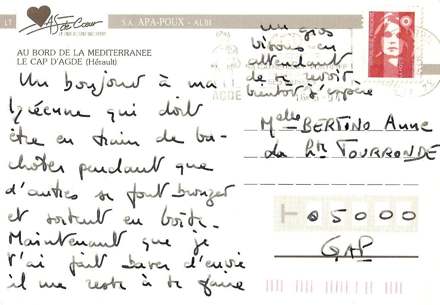 LT
As de Cœur
S.A. APA-POUX - ALBI
AU BORD DE LA MEDITERRANEE
LE CAP D'AGDE (Hérault)
Un bonjour à ma
lycéenne qui doit
être en train de ba-
choter pendant que
d'autres se font bronzer
et sortent en boîte.
Maintenant que je
t'ai fait baver d'envie
il me reste à te faire
un gros
bisous en
attendant
de te revoir
bientôt j'espère
AGDE
Melle BERTINO Anne
La Tourronde
05000
GAP